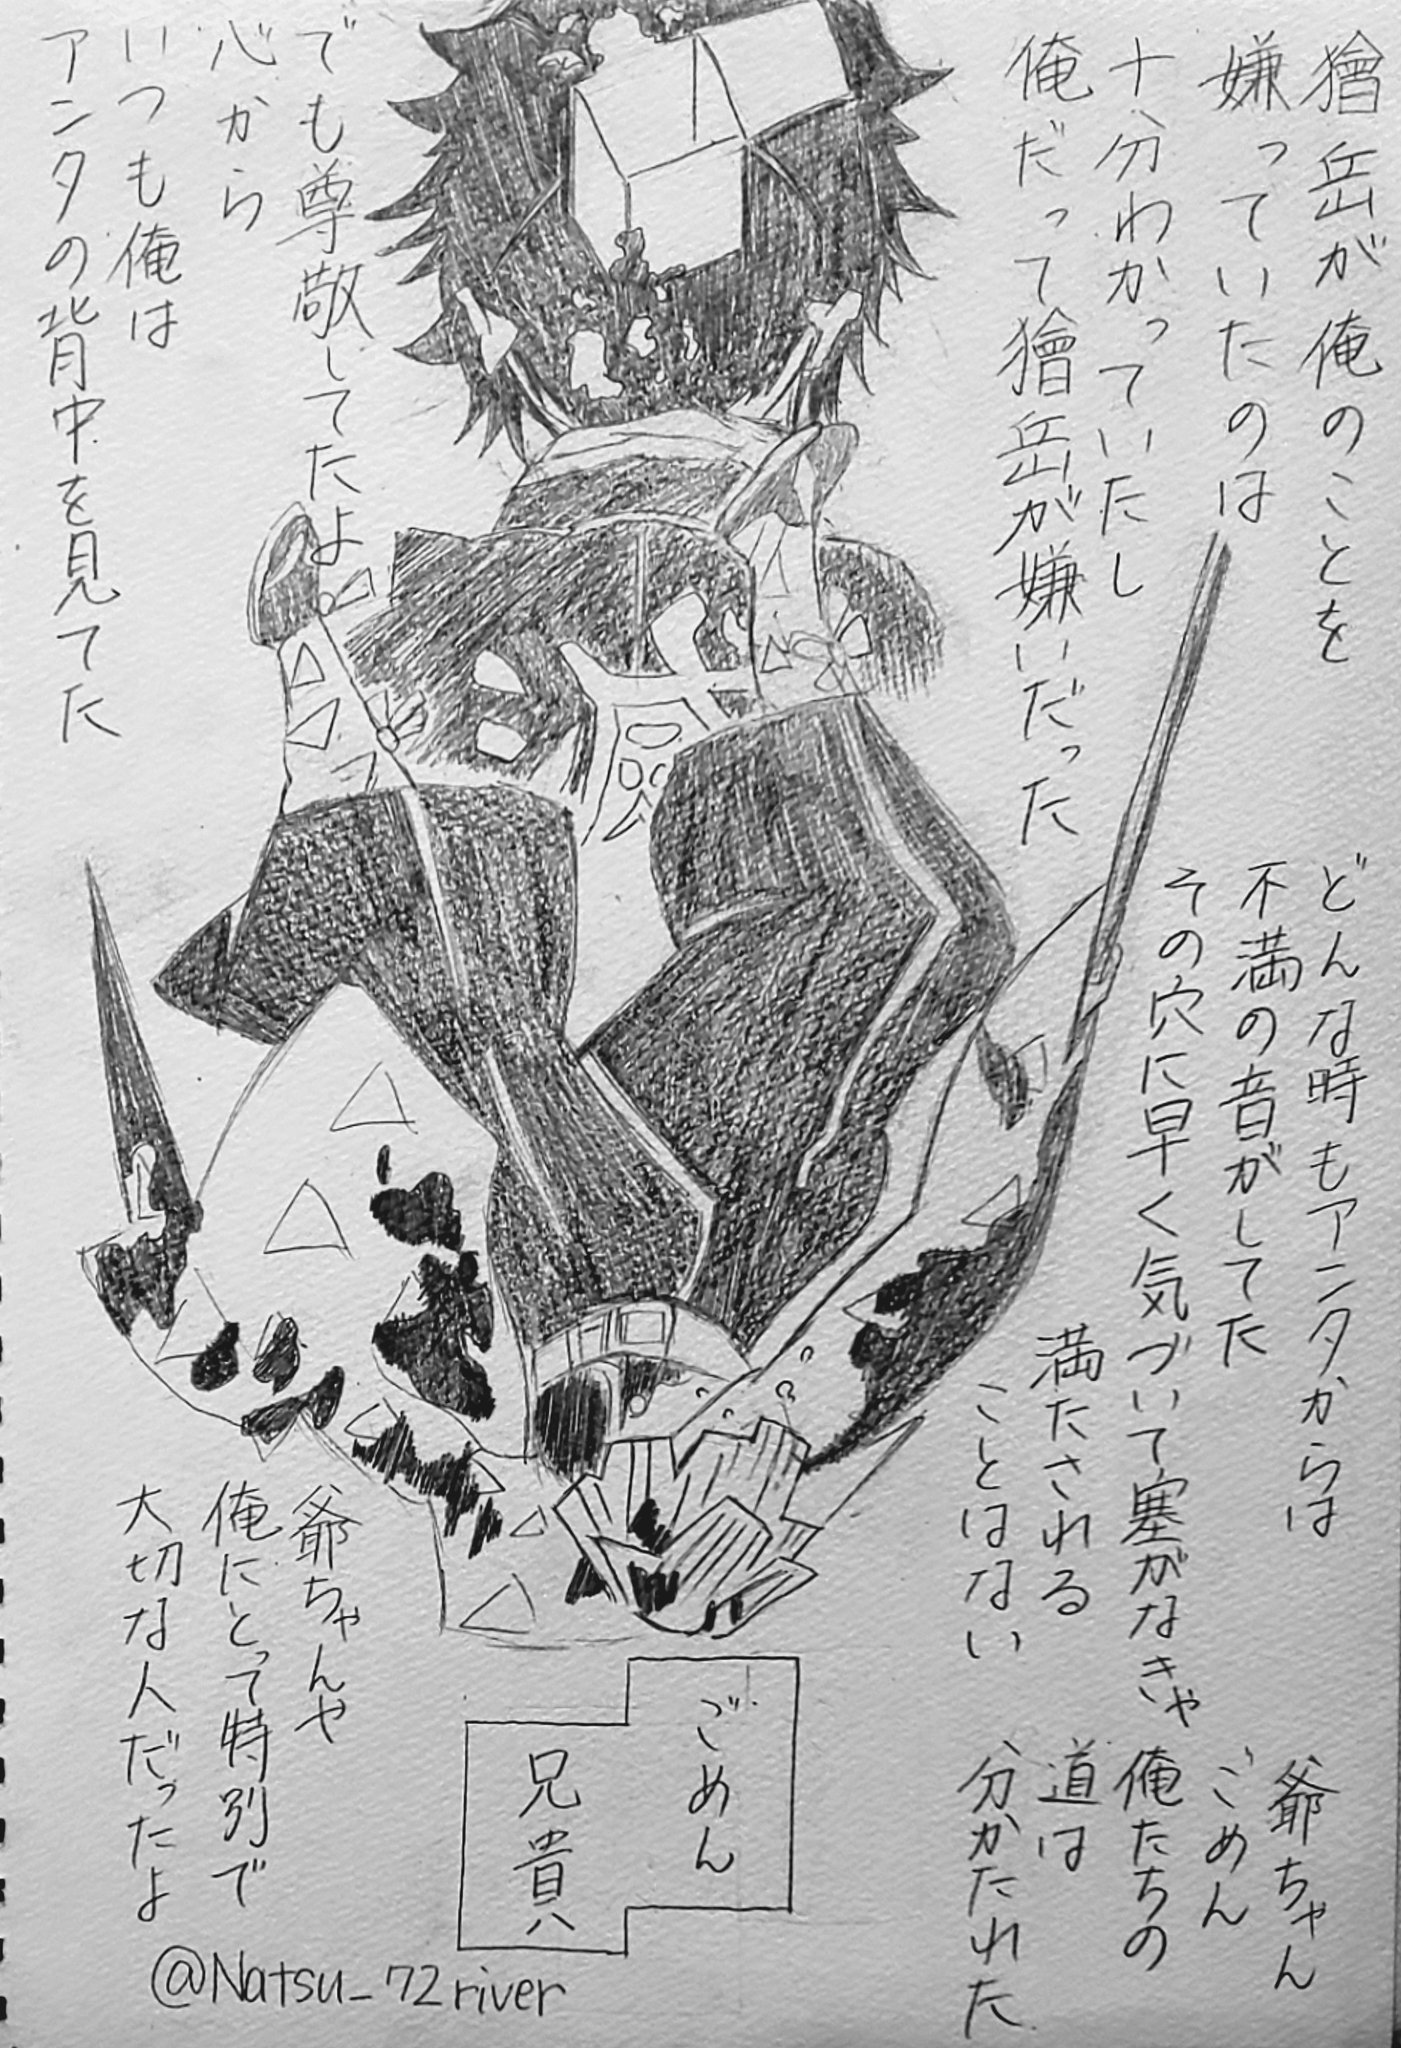 獪岳が俺のことを
嫌っていたのは
十分わかっていたし
俺だって獪岳が嫌いだった
でも尊敬してたよ
心から
いつも俺は
アンタの背中を見てた
どんな時もアンタからは
不満の音がしてた
その穴に早く気づいて塞がなきゃ
満たされる
ことはない
爺ちゃん
ごめん
俺たちの
道は
分かたれた
爺ちゃんや
俺にとって特別で
大切な人だったよ
ごめん
兄貴
@Natsu_72river